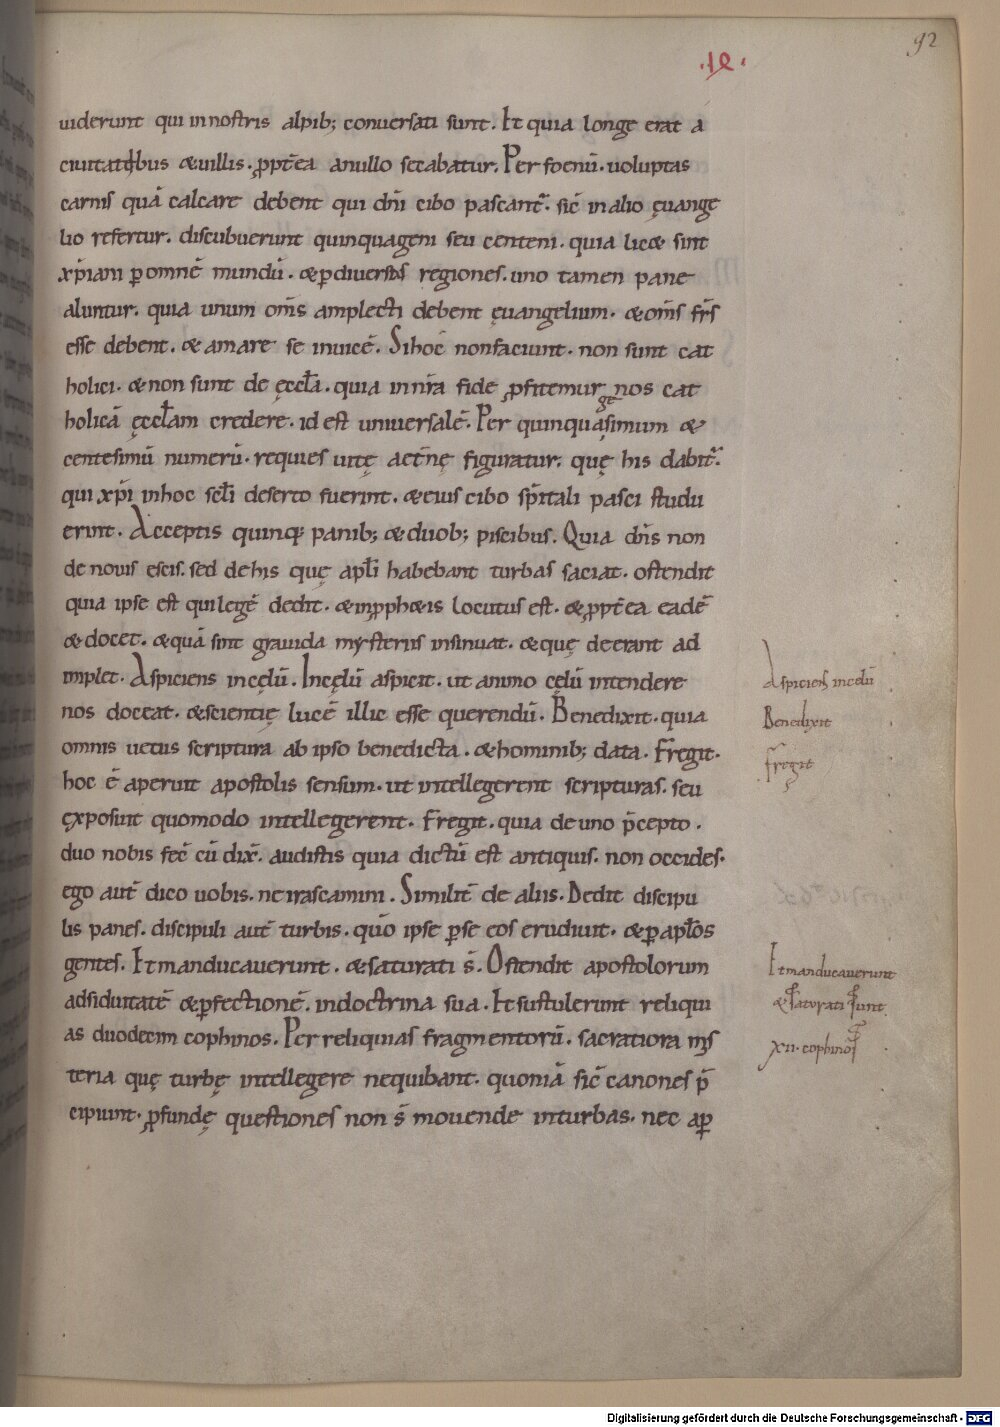 92
.LE.
uiderunt qui in nostris alpib; conuersati sunt. Et quia longe erat a
ciuitatibus &uillis. ꝓpt̄ea a nullo secabatur. Per foenū. uoluptas
carnis quā calcare debent qui dn̄i cibo pascant᷑. sic̄ in alio ęuange
lio refertur. discubuerunt quinquageni seu centeni. quia lic& sint
xp̄iani ꝑ omnē mundū. &ꝑ diuersas regiones. uno tamen pane
aluntur. quia unum om̄s amplecti debent ęuangelium. &om̄s fr̄s
esse debent. & amare se inuicē. Si hoc non faciunt. non sunt cat
holici. &non sunt de ęccl̄a. quia in nr̄a fide ꝓfitemur nos cat
holicā ęccl̄am credere. id est uniuersalē. Per quinquagesimum &
centesimū numerū. requies uitę aet̄nę figuratur. quę his dabit᷑.
qui xp̄i in hoc sc̄li deserto fuerint. &eius cibo sp̄itali pasci studu
erint. Acceptis quinq; panib; &duob; piscibus. Quia dn̄s non
de nouis escis. sed de his quę apl̄i habebant turbas saciat. ostendit
quia ipse est qui legē dedit. &in ꝓph&is locutus est. &ꝓpt̄ea eadē
&docet. &quā sint grauida mysteriis insinuat. &quę deerant ad
implet. Aspiciens in cęlū. In cęlū aspicit. ut animo cęlū intendere
nos doceat. &scientię lucē illic esse querendū. Benedixit. quia
omnis uetus scriptura ab ipso benedicta. &hominib; data. Fregit.
hoc ē aperuit apostolis sensum. ut intellegerent scripturas. seu
ęxposuit quomodo intellegerent. Fregit. quia de uno p̄cepto.
duo nobis fec̄ cū dix̄. audistis quia dictū est antiquis. non occides.
ego aut̄ dico uobis. ne irascamini. Similit̄ de aliis. Dedit discipu
lis panes. discipuli aut̄ turbis. quō ipse ꝑ se eos erudiuit. &ꝑ apl̄os
gentes. Et manducauerunt. &saturati s̄. Ostendit apostolorum
adsiduitatē &ꝑfectionē. in doctrina sua. Et sustulerunt reliqui
as duodecim cophinos. Per reliquias fragmentorū. sacratiora mis
teria quę turbę intellegere nequibant. quoniā sic̄ canones p̄
cipiunt. ꝓfundę questiones non s̄ mouende in turbas. nec aꝑ
Aspiciens in celū
Benedixit
Fregit
Et manducauerunt
&saturati sunt.
XII. cophinos
Digitalisierung gefördert durch die Deutsche Forschungsgemeinschaft - DFG